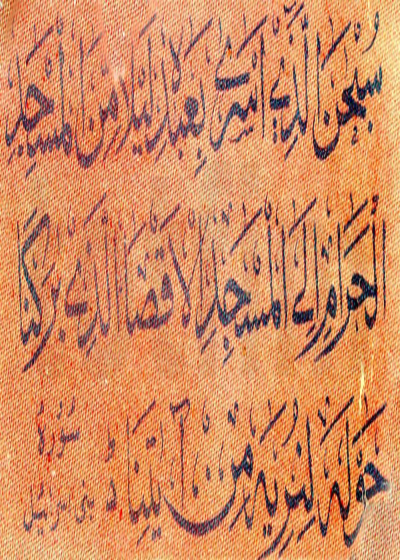 سُبْحٰنَ الَّذِیْ اَسْرٰی بِعَبْدِهٖ لَیْلًا مِّنَ الْمَسْجِدِ
الْحَرَامِ اِلَی الْمَسْجِدِ الْاَقْصَا الَّذِیْ بٰرَكْنَا
حَوْلَهٗ لِنُرِیَهٗ مِنْ اٰیٰتِنَا سورة بنی اسرائیل